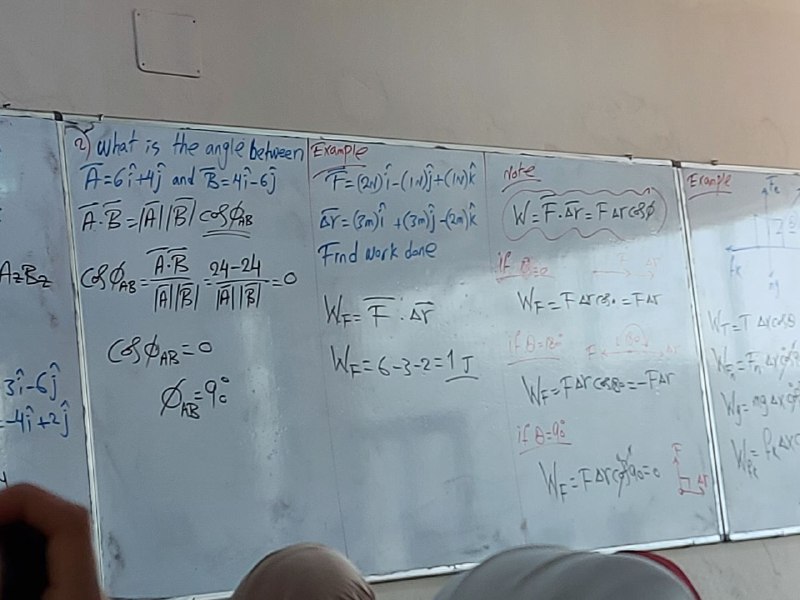 AzBz
3î-6ĵ
-4î+2ĵ
2) What is the angle between
A̅=6î+4ĵ and B̅=4î-6ĵ
A̅·B̅=|A̅||B̅| cosϕ_AB
cosϕ_AB=A̅·B̅/|A̅||B̅|=24-24/|A̅||B̅|=0
cosϕ_AB=0
ϕ_AB=90°
Example
F̅=(2N)î-(1N)ĵ+(1N)k̂
Δr̅=(3m)î+(3m)ĵ-(2m)k̂
Find work done
W_F=F̅·Δr̅
W_F=6-3-2=1 J
Note
W=F̅·Δr̅=FΔr cosϕ
if θ=0
W_F=FΔr cos0=FΔr
if θ=180°
F 180° Δr
W_F=FΔr cos180=-FΔr
if θ=90°
W_F=FΔr cos90=0
F
Δr
Example
Fn
fk
mg
W_T=TΔr cosθ
W_Fn=FnΔr cos
W_g=mgΔr cos
W_fk=fkΔr